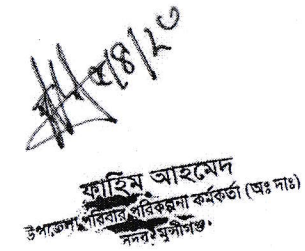 ৫/৪/২৩
ফাহিম আহমেদ
উপজেলা পরিবার পরিকল্পনা কর্মকর্তা (অঃ দাঃ)
সদর, মুন্সীগঞ্জ।